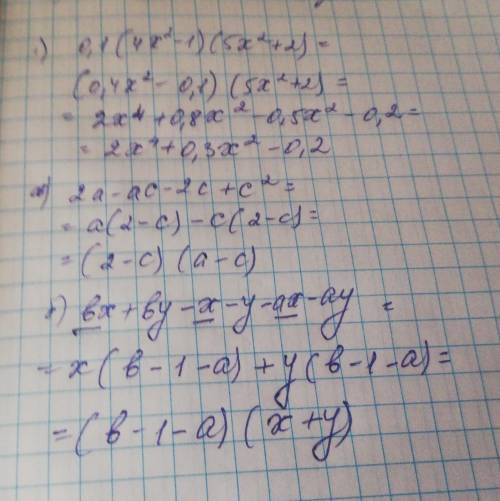 0,1(4x²-1)(5x²+2)=
(0,4x²-0,1)(5x²+2)=
= 2x⁴+0,8x²-0,5x²-0,2=
= 2x⁴+0,3x²-0,2
2a-ac-2c+c²=
= a(2-c)-c(2-c)=
=(2-c)(a-c)
вx+вy-x-y-ax-ay =
= x(в-1-a)+y(в-1-a)=
=(в-1-a)(x+y)